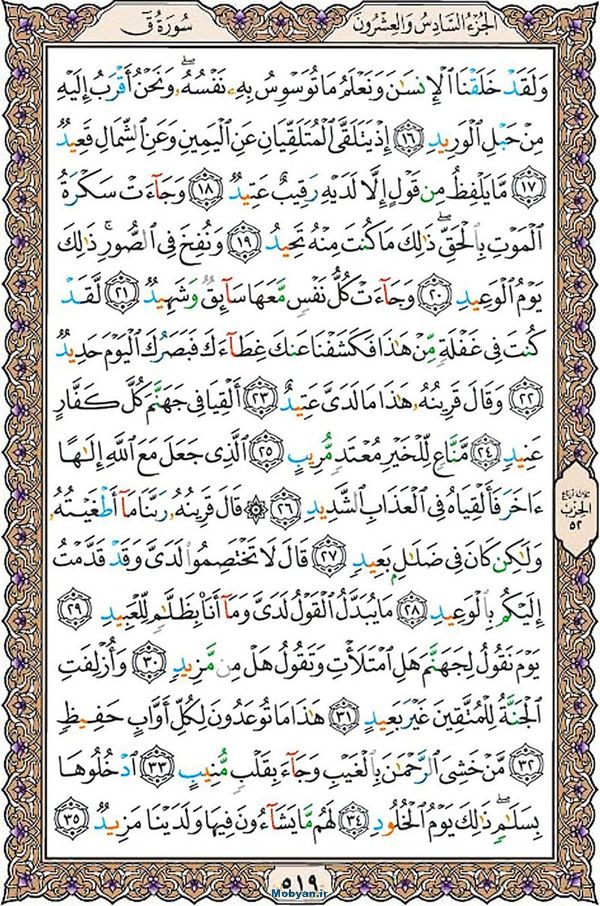 الجزء السادس والعشرون
سورة ق
وَلَقَدْ خَلَقْنَا ٱلْإِنسَٰنَ وَنَعْلَمُ مَا تُوَسْوِسُ بِهِۦ نَفْسُهُۥ ۖ وَنَحْنُ أَقْرَبُ إِلَيْهِ
مِنْ حَبْلِ ٱلْوَرِيدِ ﴿١٦﴾ إِذْ يَتَلَقَّى ٱلْمُتَلَقِّيَانِ عَنِ ٱلْيَمِينِ وَعَنِ ٱلشِّمَالِ قَعِيدٌ
﴿١٧﴾ مَّا يَلْفِظُ مِن قَوْلٍ إِلَّا لَدَيْهِ رَقِيبٌ عَتِيدٌ ﴿١٨﴾ وَجَآءَتْ سَكْرَةُ
ٱلْمَوْتِ بِٱلْحَقِّ ۖ ذَٰلِكَ مَا كُنتَ مِنْهُ تَحِيدُ ﴿١٩﴾ وَنُفِخَ فِى ٱلصُّورِ ۚ ذَٰلِكَ
يَوْمُ ٱلْوَعِيدِ ﴿٢٠﴾ وَجَآءَتْ كُلُّ نَفْسٍ مَّعَهَا سَآئِقٌ وَشَهِيدٌ ﴿٢١﴾ لَّقَدْ
كُنتَ فِى غَفْلَةٍ مِّنْ هَٰذَا فَكَشَفْنَا عَنكَ غِطَآءَكَ فَبَصَرُكَ ٱلْيَوْمَ حَدِيدٌ
﴿٢٢﴾ وَقَالَ قَرِينُهُۥ هَٰذَا مَا لَدَىَّ عَتِيدٌ ﴿٢٣﴾ أَلْقِيَا فِى جَهَنَّمَ كُلَّ كَفَّارٍ
عَنِيدٍ ﴿٢٤﴾ مَّنَّاعٍ لِّلْخَيْرِ مُعْتَدٍ مُّرِيبٍ ﴿٢٥﴾ ٱلَّذِى جَعَلَ مَعَ ٱللَّهِ إِلَٰهًا
ءَاخَرَ فَأَلْقِيَاهُ فِى ٱلْعَذَابِ ٱلشَّدِيدِ ﴿٢٦﴾ ۞ قَالَ قَرِينُهُۥ رَبَّنَا مَآ أَطْغَيْتُهُۥ
وَلَٰكِن كَانَ فِى ضَلَٰلٍۭ بَعِيدٍ ﴿٢٧﴾ قَالَ لَا تَخْتَصِمُوا۟ لَدَىَّ وَقَدْ قَدَّمْتُ
إِلَيْكُم بِٱلْوَعِيدِ ﴿٢٨﴾ مَا يُبَدَّلُ ٱلْقَوْلُ لَدَىَّ وَمَآ أَنَا۠ بِظَلَّٰمٍ لِّلْعَبِيدِ ﴿٢٩﴾
يَوْمَ نَقُولُ لِجَهَنَّمَ هَلِ ٱمْتَلَأْتِ وَتَقُولُ هَلْ مِن مَّزِيدٍ ﴿٣٠﴾ وَأُزْلِفَتِ
ٱلْجَنَّةُ لِلْمُتَّقِينَ غَيْرَ بَعِيدٍ ﴿٣١﴾ هَٰذَا مَا تُوعَدُونَ لِكُلِّ أَوَّابٍ حَفِيظٍ
﴿٣٢﴾ مَّنْ خَشِىَ ٱلرَّحْمَٰنَ بِٱلْغَيْبِ وَجَآءَ بِقَلْبٍ مُّنِيبٍ ﴿٣٣﴾ ٱدْخُلُوهَا
بِسَلَٰمٍ ۖ ذَٰلِكَ يَوْمُ ٱلْخُلُودِ ﴿٣٤﴾ لَهُم مَّا يَشَآءُونَ فِيهَا وَلَدَيْنَا مَزِيدٌ ﴿٣٥﴾
ثلاثة أرباع
الحزب
٥٢
٥١٩
Mobyan.ir